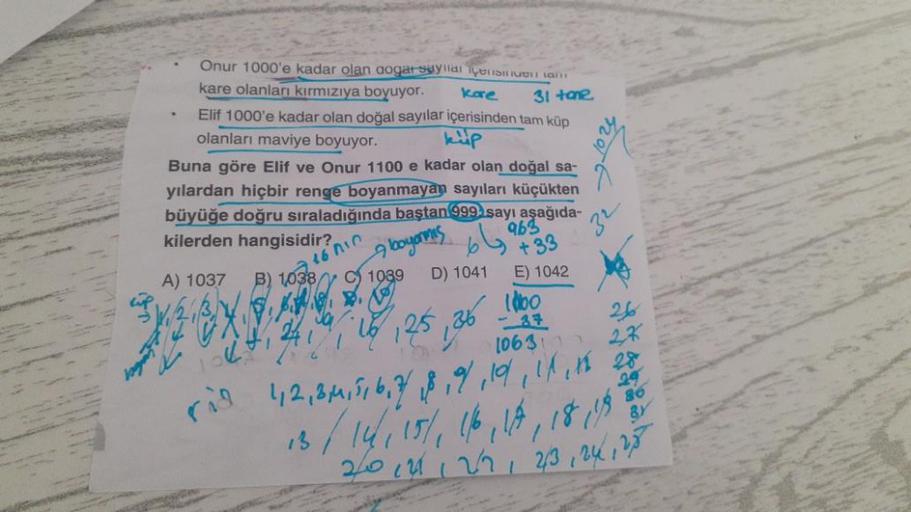 • Onur 1000'e kadar olan doğal sayılar içerisinden tam
kare olanları kırmızıya boyuyor. kare 31 tane
• Elif 1000'e kadar olan doğal sayılar içerisinden tam küp
olanları maviye boyuyor. küp
Buna göre Elif ve Onur 1100 e kadar olan doğal sa-
yılardan hiçbir renge boyanmayan sayıları küçükten
büyüğe doğru sıraladığında baştan 999. sayı aşağıda-
kilerden hangisidir?
963
+ 33
boyanmış
A) 1037 B) 1038 C) 1039 D) 1041 E) 1042
1100
- 37
1063
16, 25, 36
1, 2, 3, 4, 5, 6, 7, 8, 9, 10, 11, 12
13, 14, 15, 16, 17, 18, 19
20, 21, 22, 23, 24, 25
1024
32
26
27
28
29
30
31